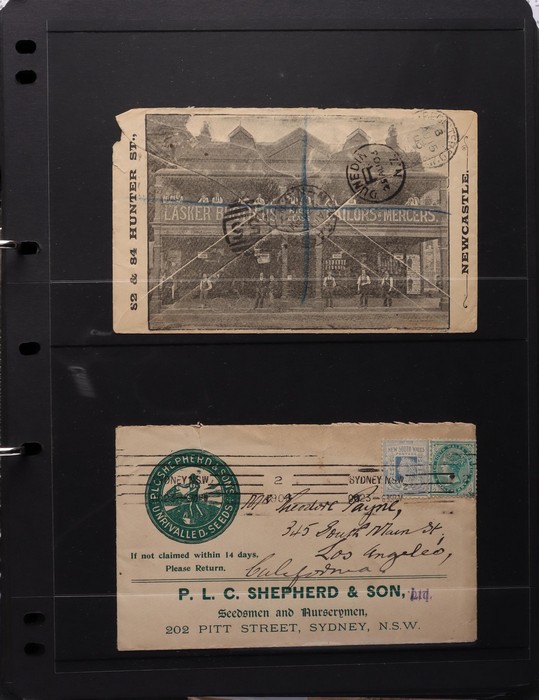 82 & 84 HUNTER ST.,
LASKER BROTHERS TAILORS & MERCERS.
NEWCASTLE.
DUNEDIN
N.Z
P. L. C. SHEPHERD & SON'S
UNRIVALLED SEEDS
SYDNEY N.S.W.
2
SYDNEY N.S.W.
NEW SOUTH WALES
Mr Theodore Payne,
345 South Main St,
Los Angeles,
California
If not claimed within 14 days,
Please Return.
P. L. C. SHEPHERD & SON, Ltd.
Seedsmen and Nurserymen,
202 PITT STREET, SYDNEY, N.S.W.